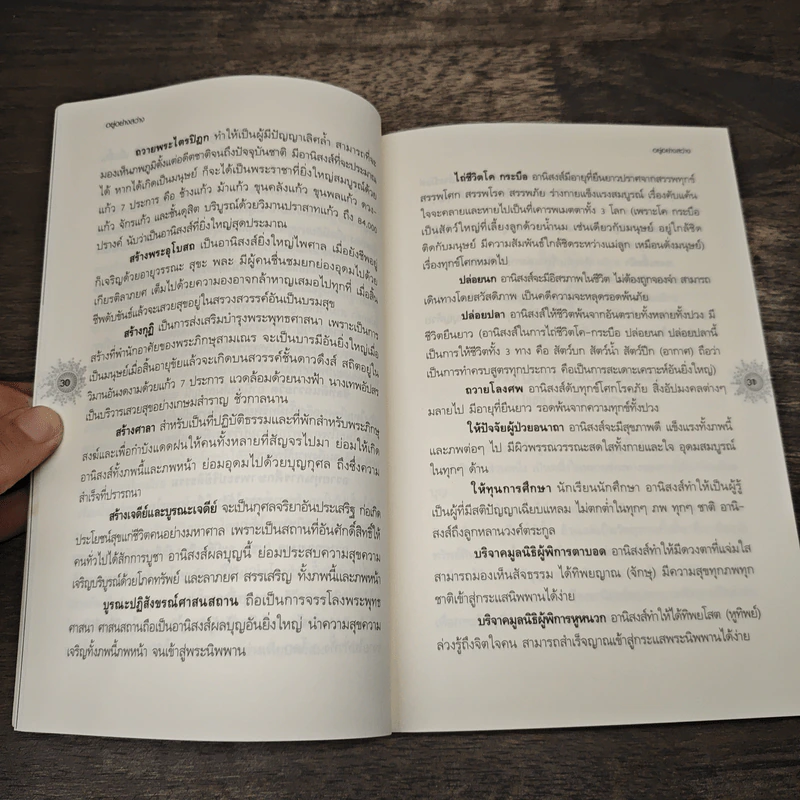 อยู่อย่างสว่าง
ถวายพระไตรปิฎก ทำให้เป็นผู้มีปัญญาเลิศล้ำ สามารถที่จะ
มองเห็นภพภูมิตั้งแต่อดีตชาติจนถึงปัจจุบันชาติ มีอานิสงส์ที่จะประมาณ
ได้ หากได้เกิดเป็นมนุษย์ ก็จะได้เป็นพระราชาที่ยิ่งใหญ่สมบูรณ์ด้วย
แก้ว 7 ประการ คือ ช้างแก้ว ม้าแก้ว ขุนคลังแก้ว ขุนพลแก้ว ดวง-
แก้ว จักรแก้ว และชั้นดุสิต บริบูรณ์ด้วยวิมานปราสาทแก้ว ถึง 84,000
ปรางค์ นับว่าเป็นอานิสงส์ที่ยิ่งใหญ่สุดประมาณ
สร้างพระอุโบสถ เป็นอานิสงส์ยิ่งใหญ่ไพศาล เมื่อยังชีพอยู่
ก็เจริญด้วยอายุวรรณะ สุขะ พละ มีผู้คนชื่นชมยกย่องอุดมไปด้วย
เกียรติลาภยศ เต็มไปด้วยความองอาจกล้าหาญเสมอไปทุกที่ เมื่อสิ้น
ชีพดับขันธ์แล้วจะเสวยสุขอยู่ในสรวงสวรรค์อันเป็นบรมสุข
สร้างกุฏิ เป็นการส่งเสริมบำรุงพระพุทธศาสนา เพราะเป็นการ
สร้างที่พำนักอาศัยของพระภิกษุสามเณร จะเป็นบารมีอันยิ่งใหญ่เมื่อ
เป็นมนุษย์เมื่อสิ้นอายุขัยแล้วจะเกิดบนสวรรค์ชั้นดาวดึงส์ สถิตอยู่ใน
วิมานอันงดงามด้วยแก้ว 7 ประการ แวดล้อมด้วยนางฟ้า นางเทพอัปสร
เป็นบริวารเสวยสุขอย่างเกษมสำราญ ชั่วกาลนาน
สร้างศาลา สำหรับเป็นที่ปฏิบัติธรรมและที่พักสำหรับพระภิกษุ
สงฆ์และเพื่อกำบังแดดฝนให้คนทั้งหลายที่สัญจรไปมา ย่อมให้เกิด
อานิสงส์ทั้งภพนี้และภพหน้า ย่อมอุดมไปด้วยบุญกุศล ถึงซึ่งความ
สำเร็จที่ปรารถนา
สร้างเจดีย์และบูรณะเจดีย์ จะเป็นกุศลจริยาอันประเสริฐ ก่อเกิด
ประโยชน์สุขแก่ชีวิตคนอย่างมหาศาล เพราะเป็นสถานที่อันศักดิ์สิทธิ์ให้
คนทั่วไปได้สักการบูชา อานิสงส์ผลบุญนี้ ย่อมประสบความสุขความ
เจริญบริบูรณ์ด้วยโภคทรัพย์ และลาภยศ สรรเสริญ ทั้งภพนี้และภพหน้า
บูรณะปฏิสังขรณ์ศาสนสถาน ถือเป็นการจรรโลงพระพุทธ
ศาสนา ศาสนสถานถือเป็นอานิสงส์ผลบุญอันยิ่งใหญ่ นำความสุขความ
เจริญทั้งภพนี้ภพหน้า จนเข้าสู่พระนิพพาน
30
อยู่อย่างสว่าง
ไถ่ชีวิตโค กระบือ อานิสงส์มีอายุที่ยืนยาวปราศจากสรรพทุกข์
สรรพโศก สรรพโรค สรรพภัย ร่างกายแข็งแรงสมบูรณ์ เรื่องคับแค้น
ใจจะคลายและหายไปเป็นที่เคารพเมตตาทั้ง 3 โลก (เพราะโค กระบือ
เป็นสัตว์ใหญ่ที่เลี้ยงลูกด้วยน้ำนม เช่นเดียวกับมนุษย์ อยู่ใกล้ชิด
ติดกับมนุษย์ มีความสัมพันธ์ใกล้ชิดระหว่างแม่ลูก เหมือนดังมนุษย์)
เรื่องทุกข์โศกหมดไป
ปล่อยนก อานิสงส์จะมีอิสรภาพในชีวิต ไม่ต้องถูกจองจำ สามารถ
เดินทางโดยสวัสดิภาพ เป็นคดีความจะหลุดรอดพ้นภัย
ปล่อยปลา อานิสงส์ให้ชีวิตพ้นจากอันตรายทั้งหลายทั้งปวง มี
ชีวิตยืนยาว (อานิสงส์ในการไถ่ชีวิตโค-กระบือ ปล่อยนก ปล่อยปลานี้
เป็นการให้ชีวิตทั้ง 3 ทาง คือ สัตว์บก สัตว์น้ำ สัตว์ปีก (อากาศ) ถือว่า
เป็นการทำครบสูตรทุกประการ ถือเป็นการสะเดาะเคราะห์อันยิ่งใหญ่)
ถวายโลงศพ อานิสงส์ดับทุกข์โศกโรคภัย สิ่งอัปมงคลต่างๆ
มลายไป มีอายุที่ยืนยาว รอดพ้นจากความทุกข์ทั้งปวง
ให้ปัจจัยผู้ป่วยอนาถา อานิสงส์จะมีสุขภาพดี แข็งแรงทั้งภพนี้
และภพต่อๆ ไป มีผิวพรรณวรรณะสดใสทั้งกายและใจ อุดมสมบูรณ์
ในทุกๆ ด้าน
ให้ทุนการศึกษา นักเรียนนักศึกษา อานิสงส์ทำให้เป็นผู้รู้
เป็นผู้ที่มีสติปัญญาเฉียบแหลม ไม่ตกต่ำในทุกๆ ภพ ทุกๆ ชาติ อานิ-
สงส์ถึงลูกหลานวงศ์ตระกูล
บริจาคมูลนิธิผู้พิการตาบอด อานิสงส์ทำให้มีดวงตาที่แจ่มใส
สามารถมองเห็นสัจธรรม ได้ทิพยญาณ (จักษุ) มีความสุขทุกภพทุก
ชาติเข้าสู่กระแสนิพพานได้ง่าย
บริจาคมูลนิธิผู้พิการหูหนวก อานิสงส์ทำให้ได้ทิพยโสต (หูทิพย์)
ล่วงรู้ถึงจิตใจคน สามารถสำเร็จญาณเข้าสู่กระแสพระนิพพานได้ง่าย
31